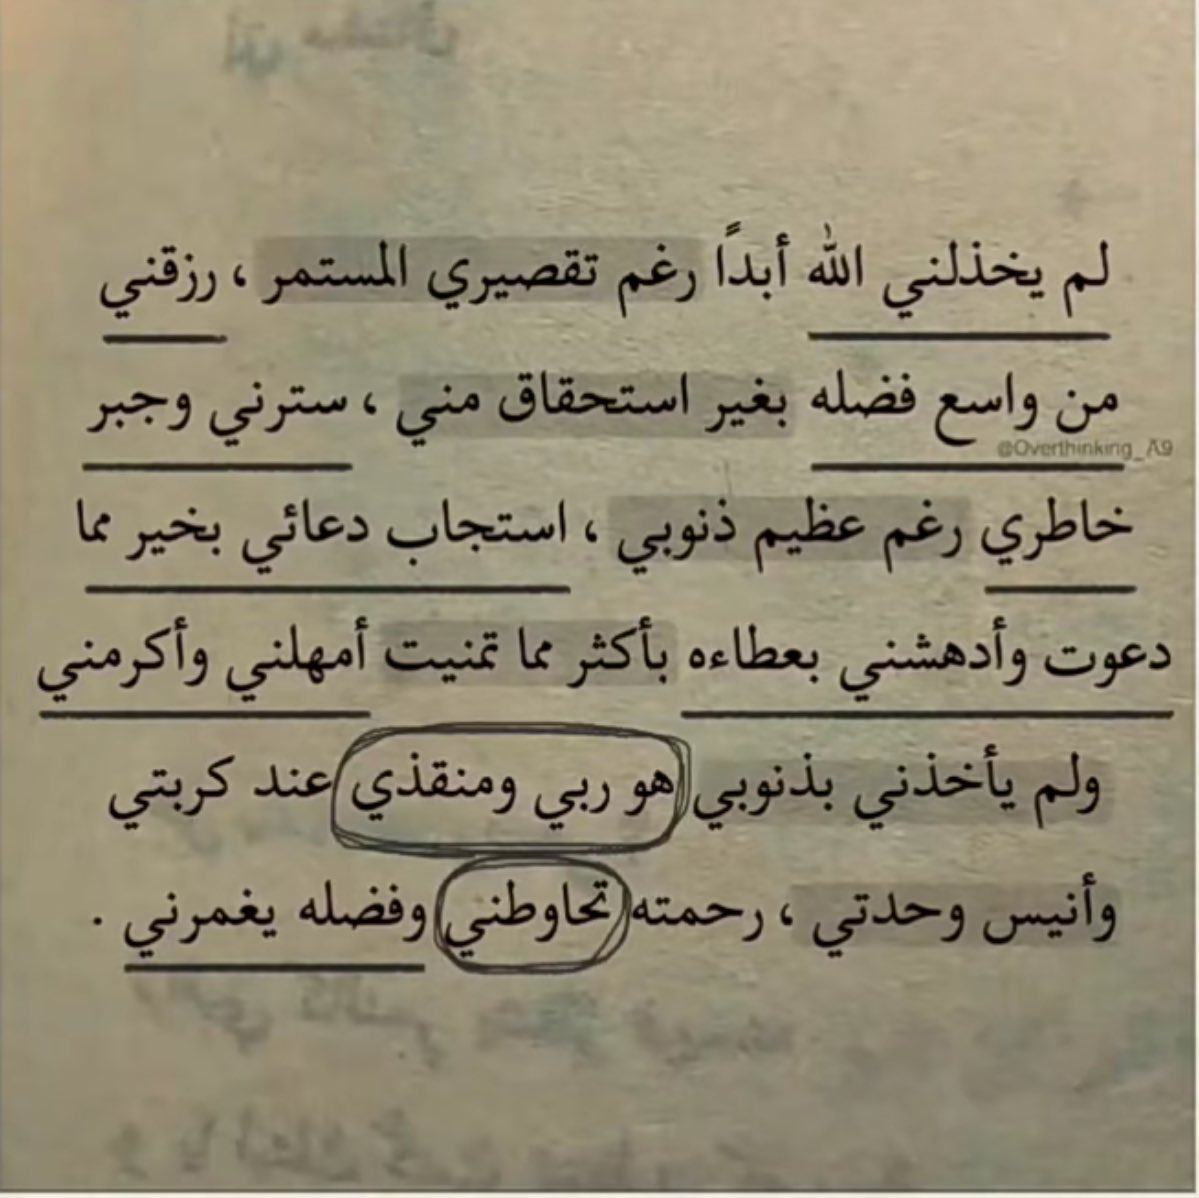 لم يخذلني الله أبداً رغم تقصيري المستمر ، رزقني
من واسع فضله بغير استحقاق مني ، سترني وجبر
@Overthinking_A9
خاطري رغم عظيم ذنوبي ، استجاب دعائي بخير مما
دعوت وأدهشني بعطاءه بأكثر مما تمنيت أمهلني وأكرمني
ولم يأخذني بذنوبي هو ربي ومنقذي عند كربتي
وأنيس وحدتي ، رحمته تحاوطني وفضله يغمرني .